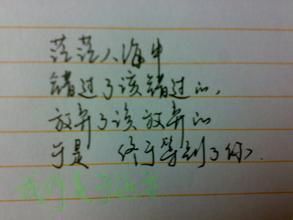 茫茫人海中
错过了该错过的,
放弃了该放弃的
于是 终于等到了你>